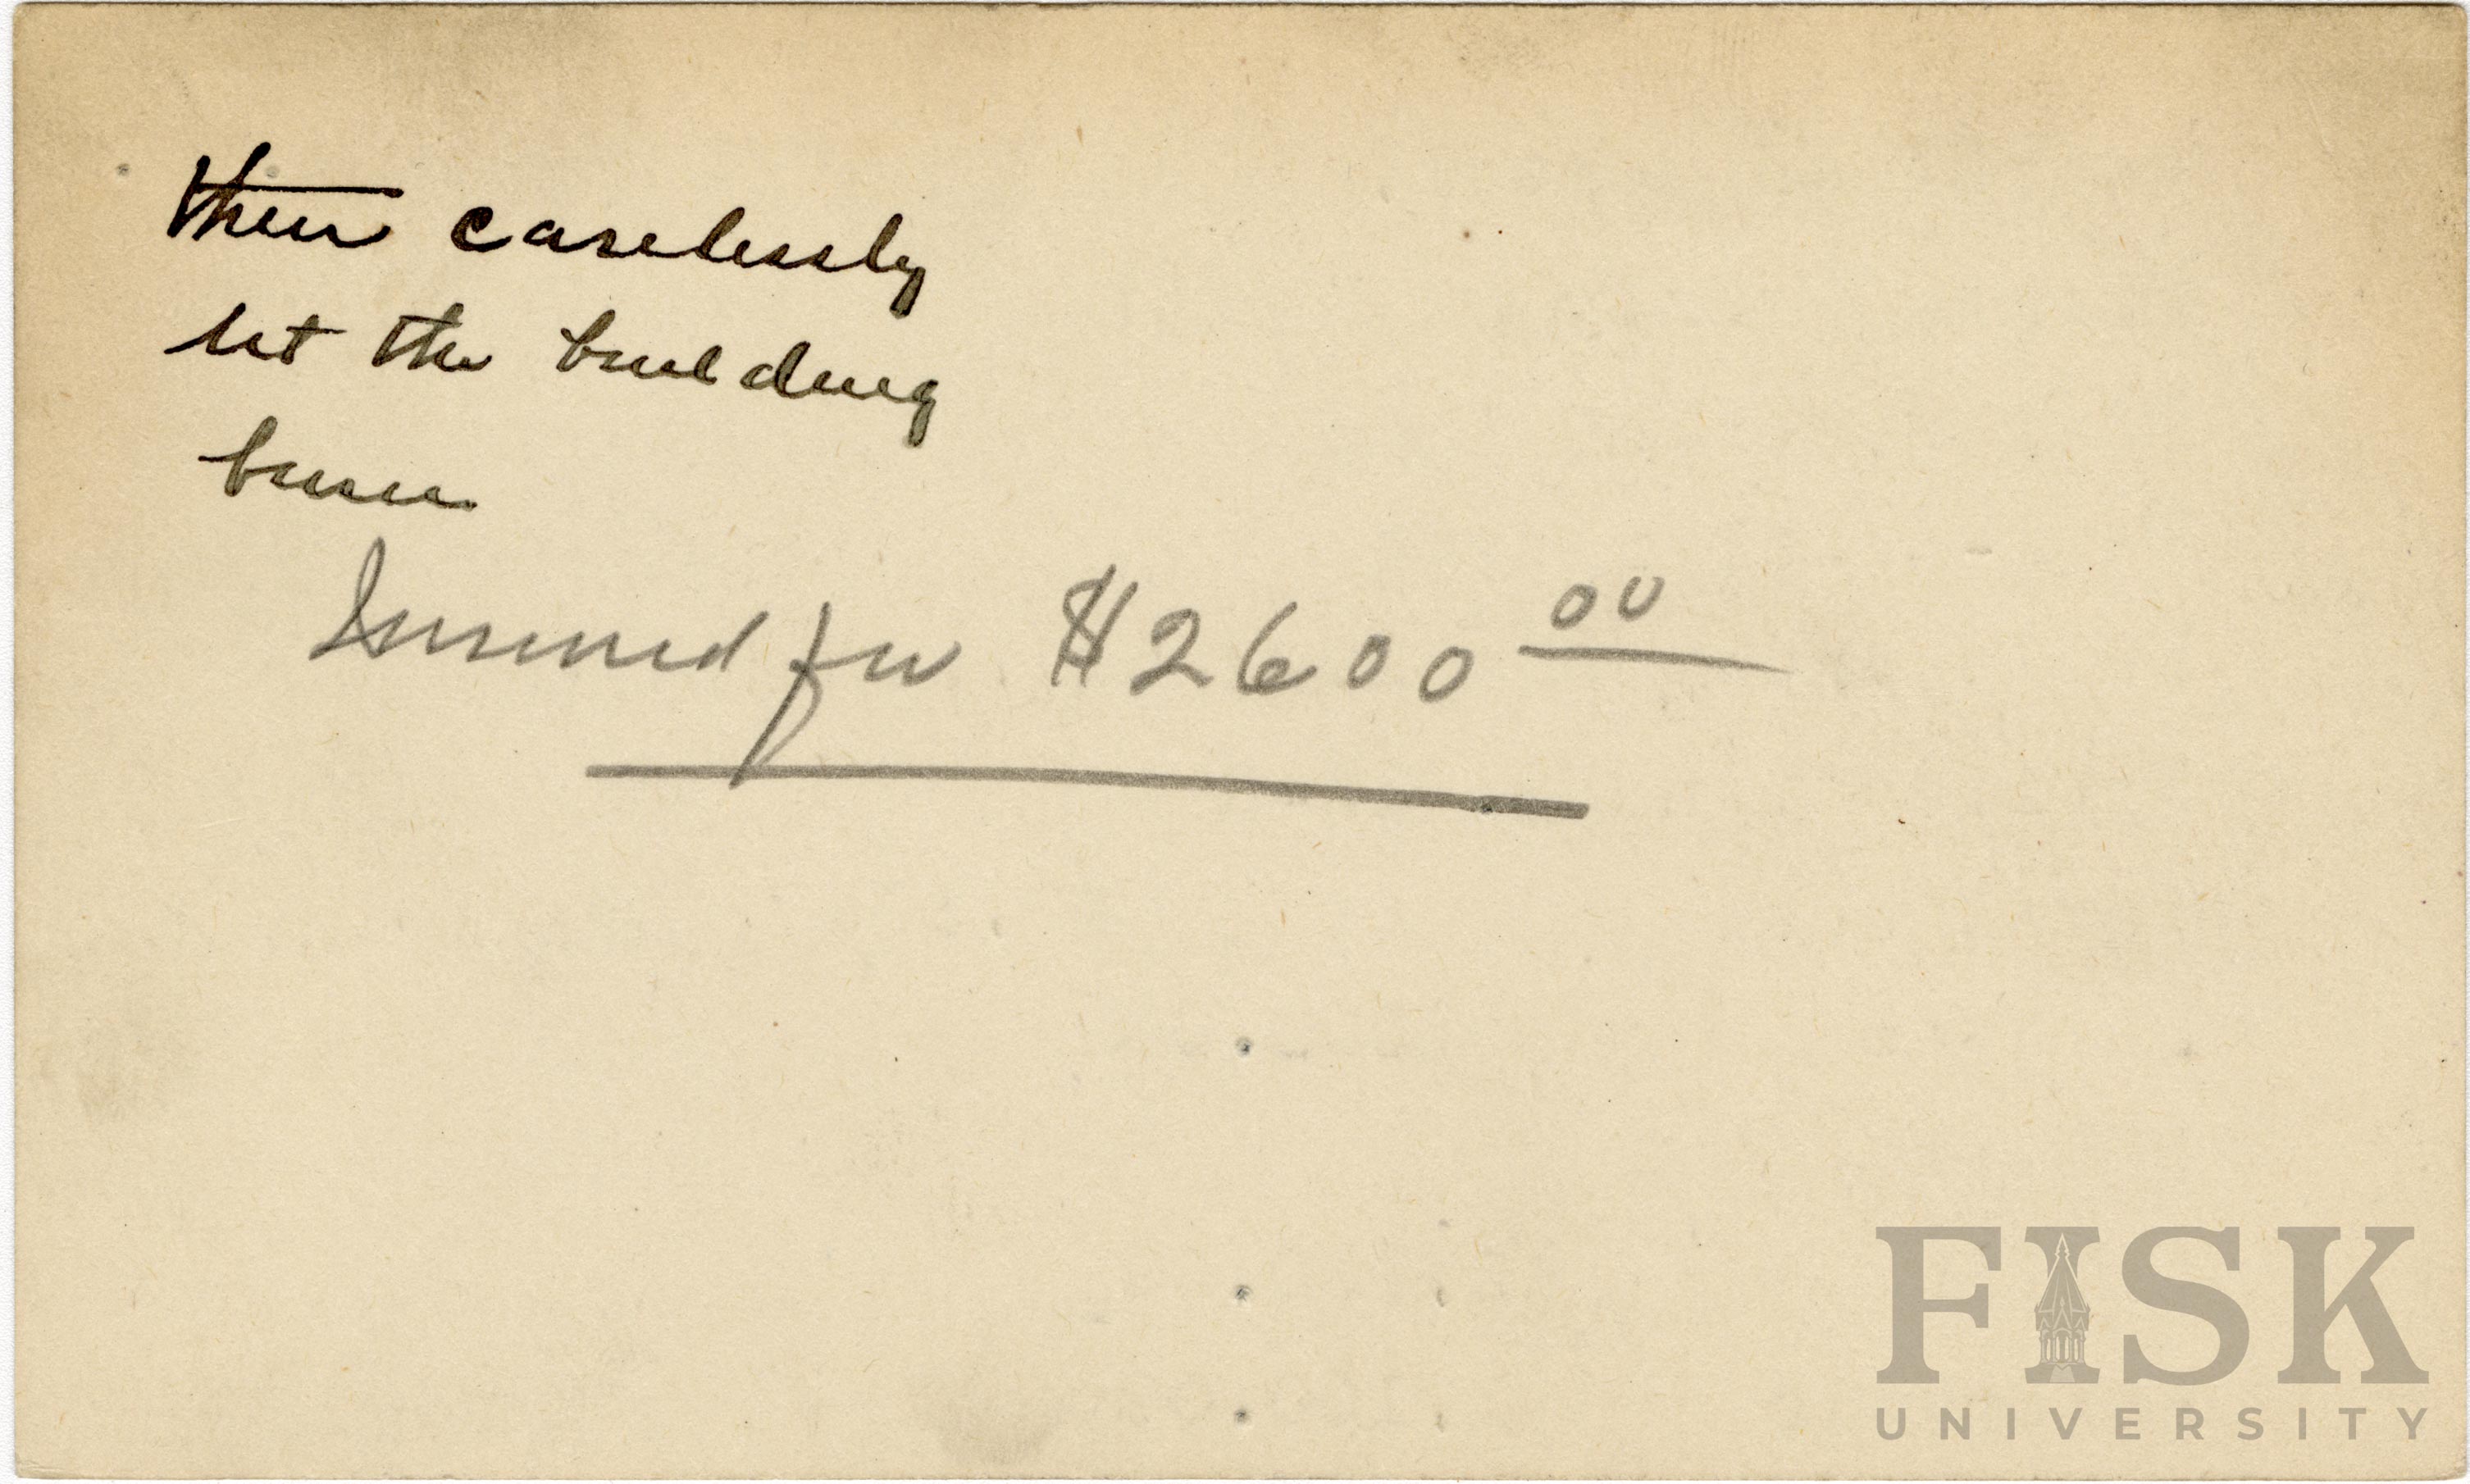 then carelessly
let the building
burn
Insured for $2600 00
FISK
UNIVERSITY